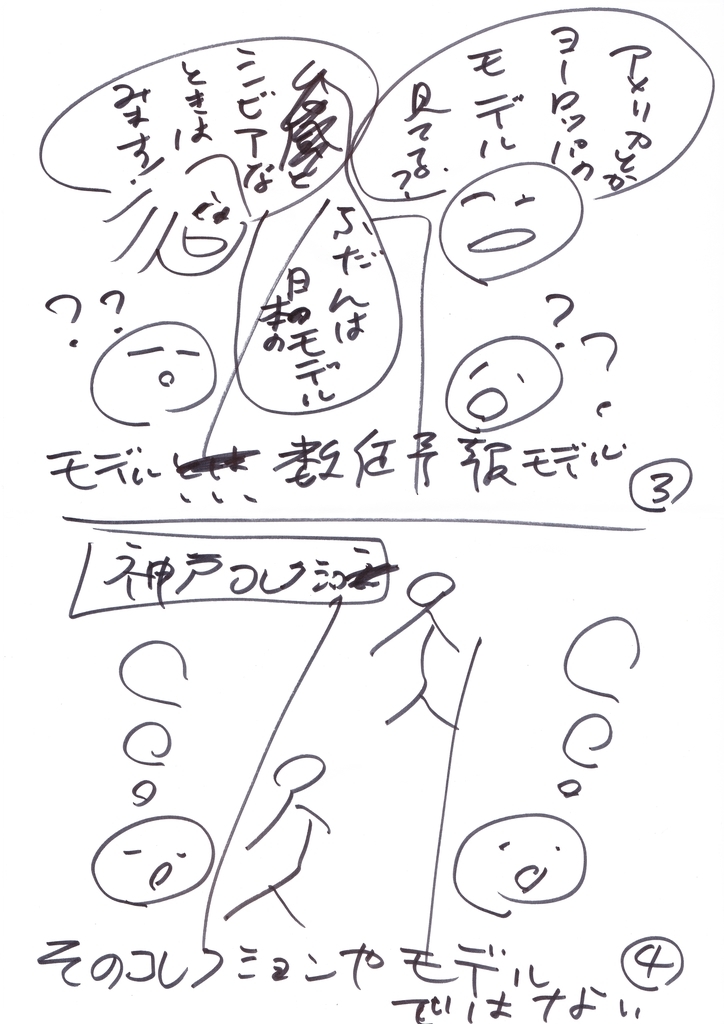 アメリカとか
ヨーロッパの
モデル
見てる?
シビアな
ときは
みます!
ふだんは
日本のモデル
??
??
モデル…… 数値予報モデル
③
神戸コレクション
そのコレクションやモデル
ではない
④